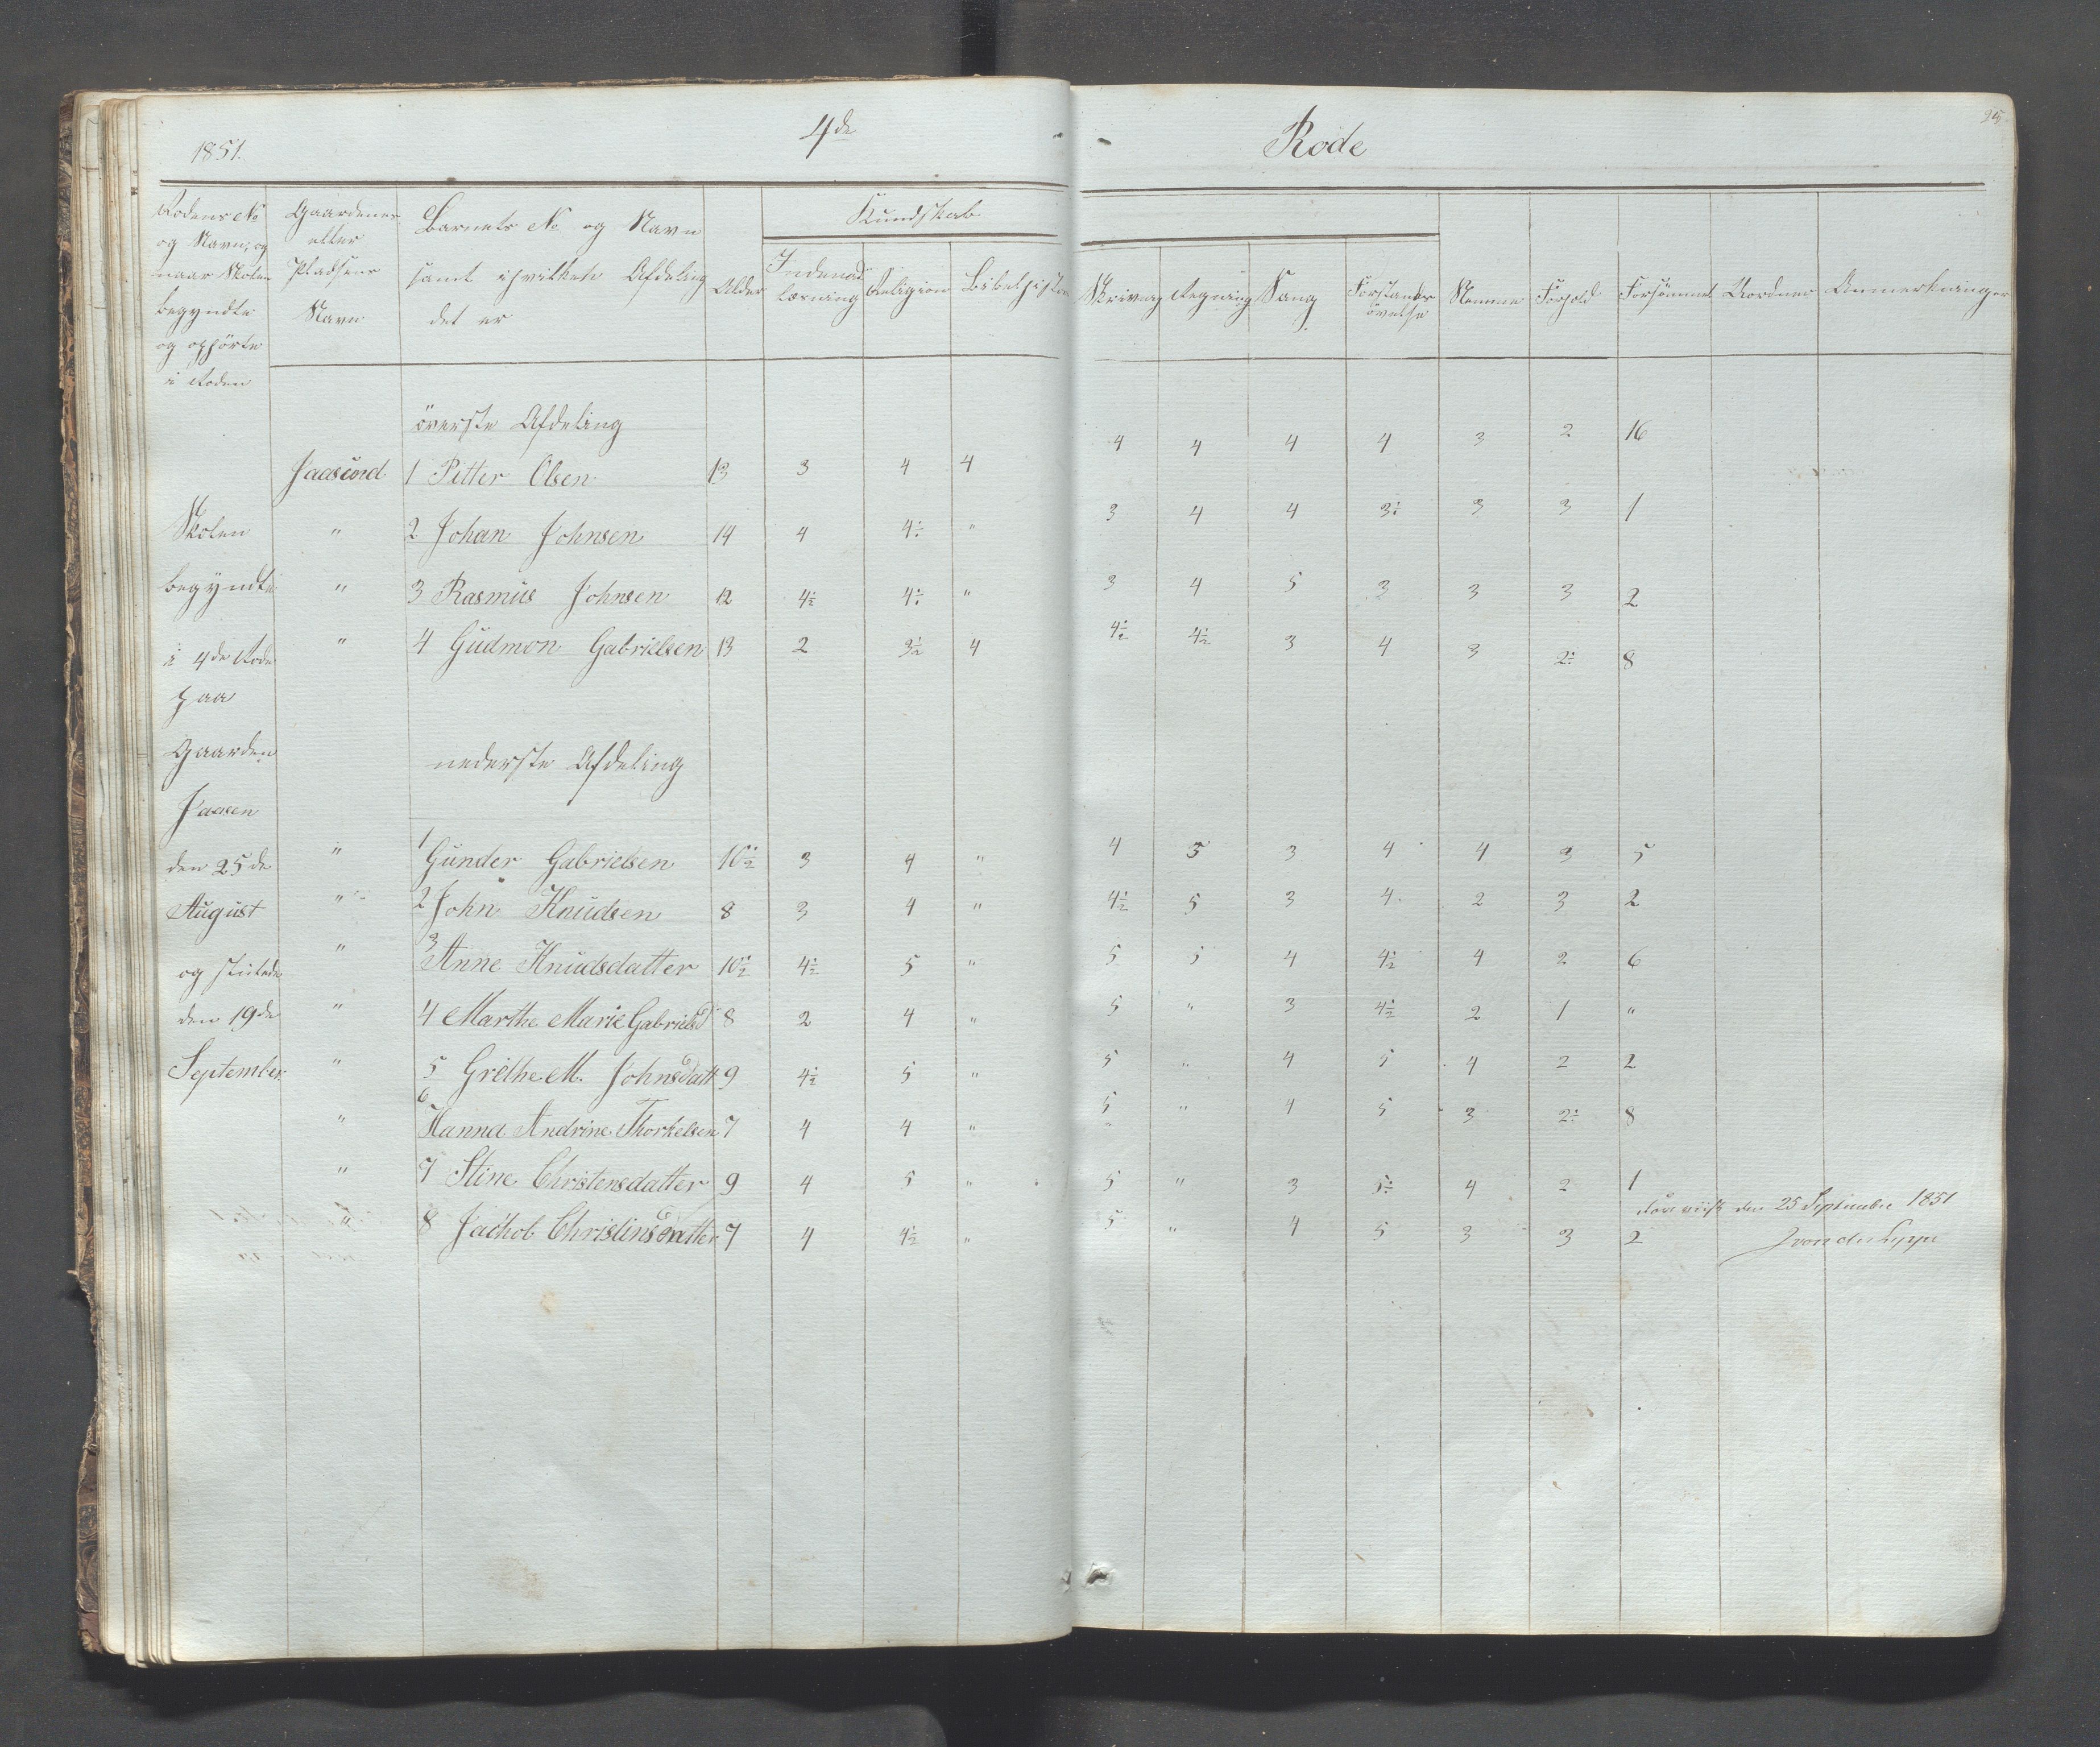 1851.
4de
Rode
25
Rodens No og Navn, og naar Skolen begyndte og ophörte i Roden
Gaardenes eller Pladsens Navn
Barnets No og Navn samt i hvilken Afdeling det er
Alder
Kundskab
Indenadlæsning
Religion
Bibelhistorie
Skrivning
Regning
Sang
Forstandsövelse
Nemme
Forhold
Forsömmet
Anmerkninger
överste Afdeling
Jaasund 1 Pitter Olsen 13 3 4 4 4 4 4 4 3 2 16
Skolen " 2 Johan Johnsen 14 4 4÷ " 3 4 4 3÷ 3 3 1
begyndte " 3 Rasmus Johnsen 12 4½ 4÷ " 3 4 5 3 3 3 2
i 4de Rode " 4 Gudmon Gabrielsen 13 2 3½ 4 4½ 4½ 3 4 3 2÷ 8
paa
Gaarden
nederste Afdeling
Jaasen
den 25de " 1 Gunder Gabrielsen 10½ 3 4 " 4 5 3 4 4 3 5
August " 2 John Knudsen 8 3 4 " 4½ 5 3 4 2 3 2
og sluttede " 3 Anne Knudsdatter 10½ 4½ 5 " 5 5 4 4½ 4 2 6
den 19de " 4 Marthe Marie Gabrielsd 8 2 4 " 5 " 3 4½ 2 1 "
September " 5 Grethe M. Johnsdatt 9 4½ 5 " 5 " 4 5 4 2 2
" 6 Hanna Andrine Thorkelsen 7 4 4 " 5 " 4 5 3 2÷ 8
" 7 Stine Christensdatter 9 4 5 " 5 " 3 5÷ 4 2 1
" 8 Jachob Christinsdatter 7 4 4½ " 5 " 4 5 3 3 2
Foreviist den 25 September 1851
J von der Lippe